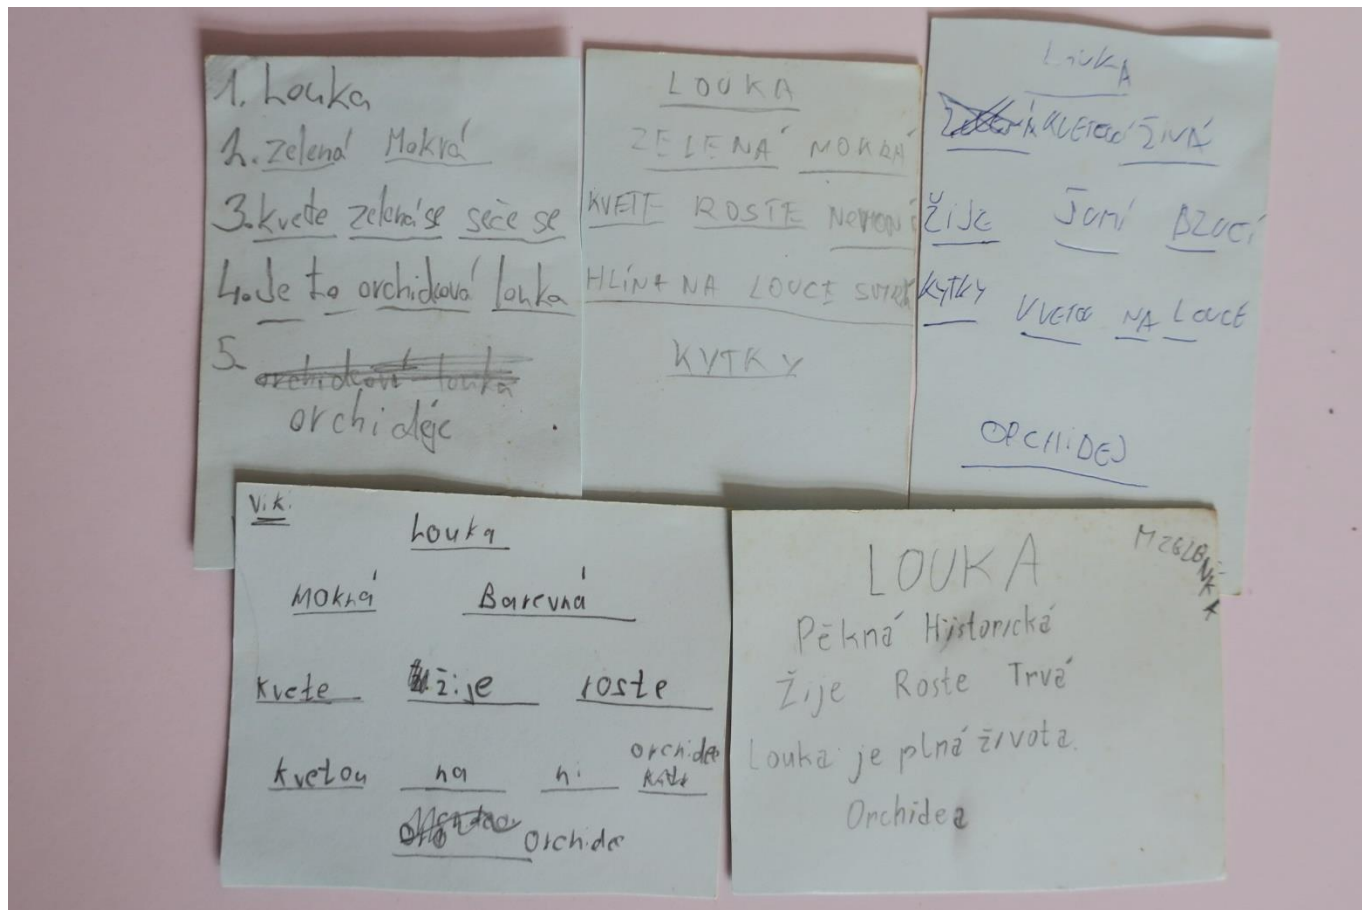 1. Louka
2. zelená Mokrá
3. kvete zelená se seče se
4. Je to orchideová louka
5. orchideová louka
orchidéje
LOUKA
ZELENÁ MOKRÁ
KVETE ROSTE
HLÍNA NA LOUCE
KYTKY
LOUKA
ŽIVÁ
ŽIJE ŠUMÍ BZUČÍ
KYTKY KVETOU NA LOUCE
ORCHIDEJ
Vik.
Louka
Mokrá Barevná
kvete žije roste
kvetou na ní orchidee
orchide
LOUKA
Pěkná Historická
Žije Roste Trvá
Louka je plná života.
Orchidea